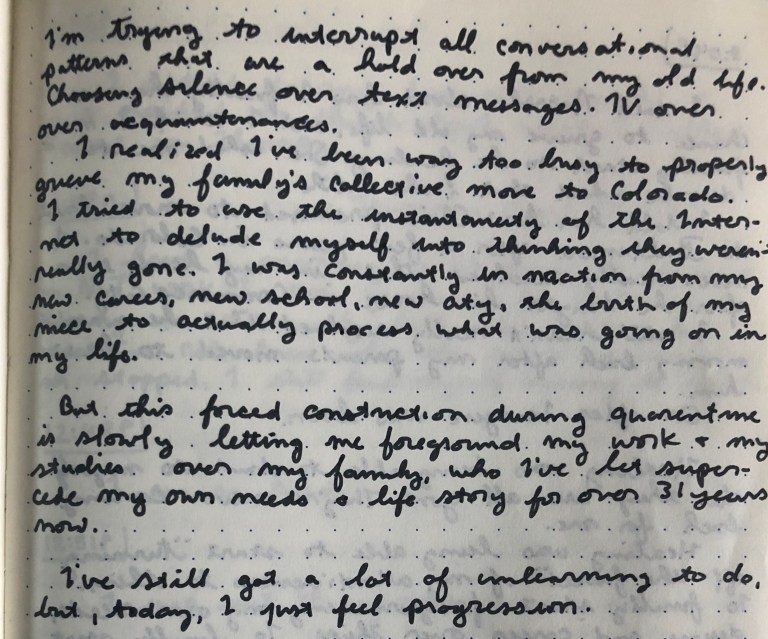 I'm trying to interrupt all conversational
patterns that are a hold over from my old life.
Choosing silence over text messages. TV over
over acquaintenances.
I realized I've been way too busy to properly
grieve my family's collective move to Colorado.
I tried to use the instantaneity of the Inter-
net to delude myself into thinking they weren't
really gone. I was constantly in from my
new career, new school, new city, the birth of my
niece to actually process what was going on in
my life.
But this forced constriction during quarentine
is slowly letting me foreground my work & my
studies over my family, who I've let super-
cede my own needs & life story for over 31 years
now.
I've still got a lot of unlearning to do,
but, today, I just feel progression.